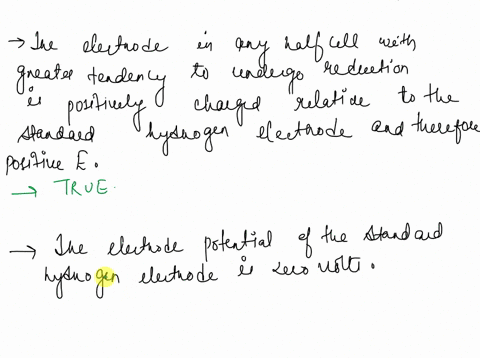 → The electrode in any half cell with
greater tendency to undergo reduction
is positively charged relative to the
standard hydrogen electrode and therefore
positive E.
→ TRUE.
→ The electrode potential of the standard
hydrogen electrode is zero volts.